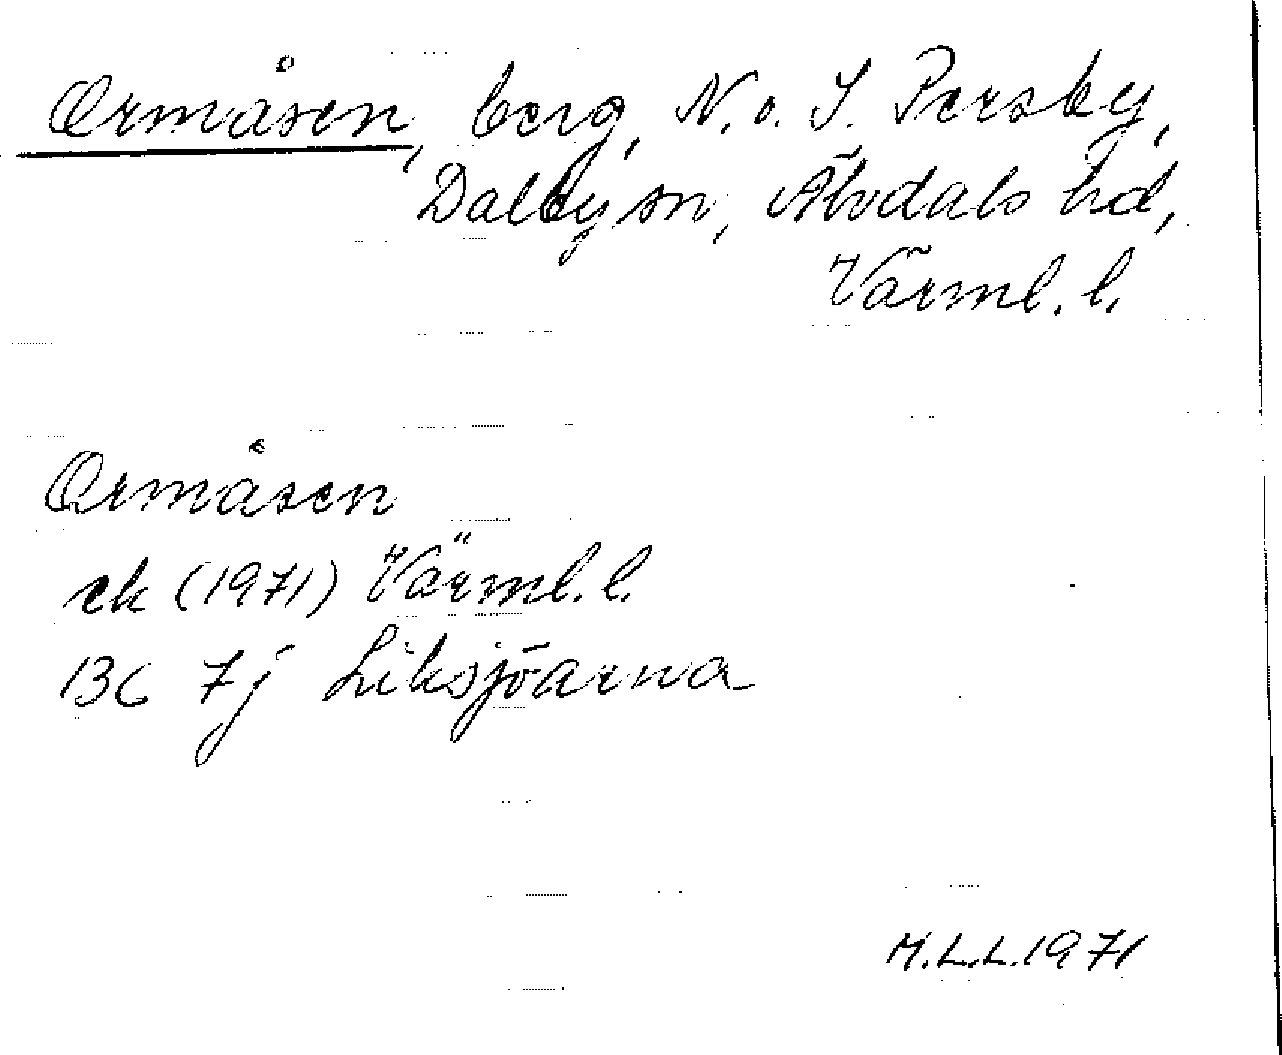 Ormåsen, berg, N. o. S. Persby,
Dalby sn, Älvdals hd,
Värml. l.
Ormåsen
ek (1971) Värml. l.
13C 7j Liksjöarna
M.L.L. 1971